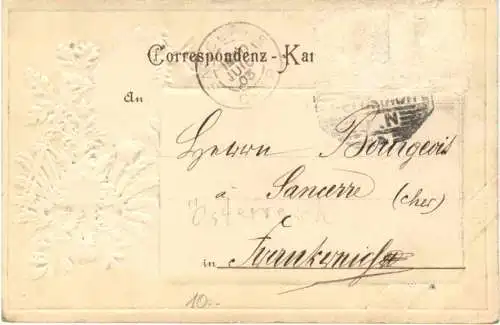 Correspondenz-Kar
An
Herrn Bourgeois
à Sancerre (cher)
Österreich
in Frankreich
10.-